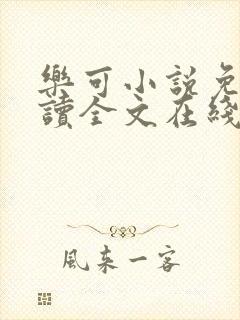 樂可小說免
讀全文在綫
風來一客